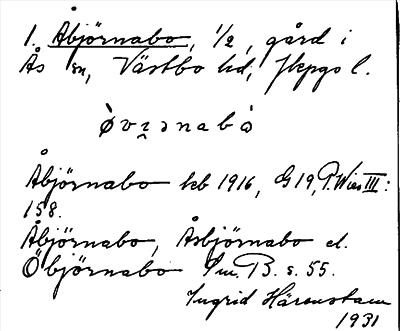 1. Åbjörnabo, 1/2, gård i
Ås sn, Västbo hd, Jkpgs l.
Åbjörnabo kb 1916, G19, P. Wies III:
158.
Åbjörnabo, Åsbjörnabo el.
Öbjörnabo Sm. B. s. 55.
Ingrid Härenstam
1931